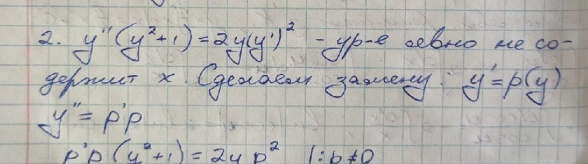 2. y''(y²+1) = 2y(y')² - ур-е явно не со-
держит x. Сделаем замену: y' = p(y)
y'' = p'p
p'p(y²+1) = 2y p² |:p≠0